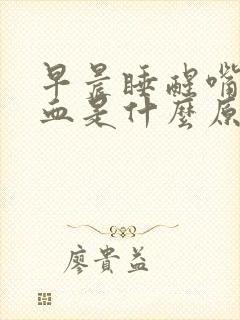 早晨睡醒嘴
血是什麼原
廖貴益